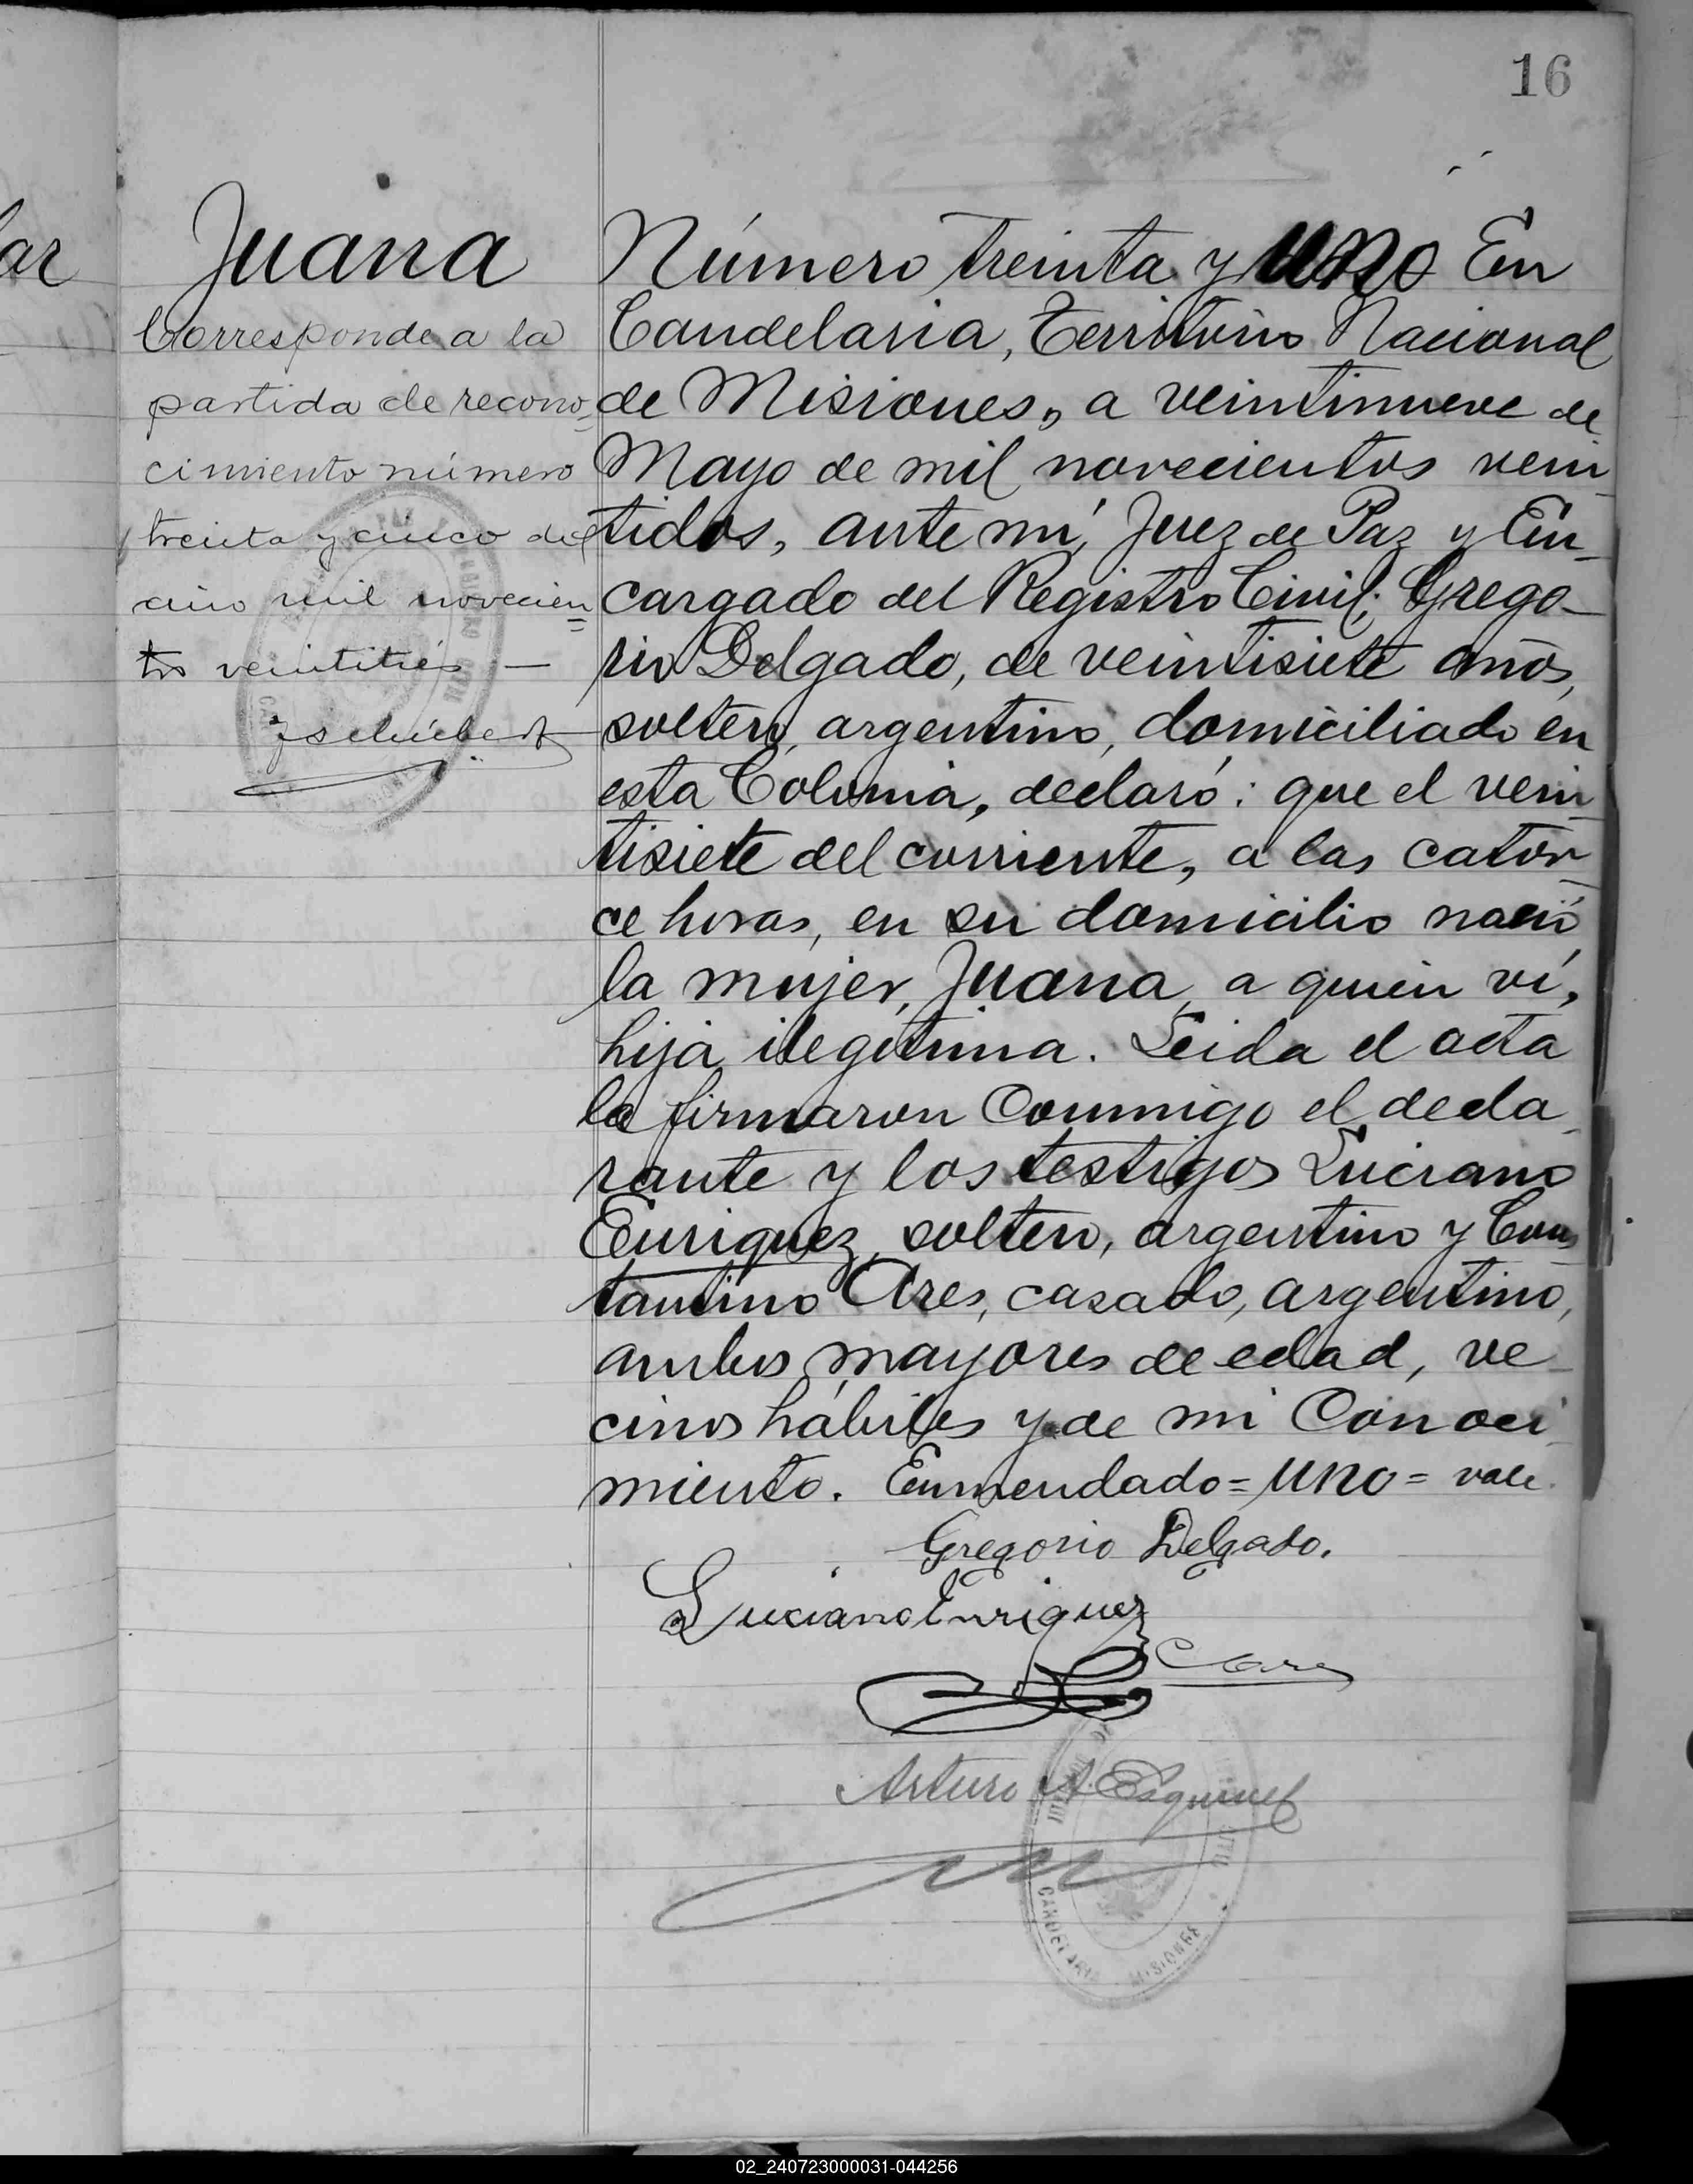 16
ar
Juana
Corresponde a la
partida de recono=
cimiento número
treinta y cinco del
año mil novecien=
tos veintitrés —
Número treinta y uno En
Candelaria, Territorio Nacional
de Misiones, a veintinueve de
Mayo de mil novecientos vein-
tidos, ante mí, Juez de Paz y En-
cargado del Registro Civil; Grego-
rio Delgado, de veintisiete años,
soltero, argentino, domiciliado en
esta Colonia, declaró: que el vein-
tisiete del corriente, a las cator-
ce horas, en su domicilio nació
la mujer, Juana, a quien ví,
hija ilegítima. Leida el acta
la firmaron conmigo el decla-
rante y los testigos Luciano
Enriquez, soltero, argentino y Cons
tantino Ares, casado, argentino,
ambos mayores de edad, ve-
cinos hábiles y de mi conoci-
miento. Enmendado=uno=vale.
Gregorio Delgado.
Luciano Enriquez
C Ares
Arturo A. Esquivel
CANDELARIA MISIONES
02_240723000031-044256